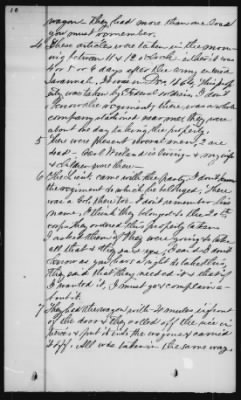 10
wagon. They had more than one load
you must remember.
4 These articles were taken in the mor-
ning between 11 & 12 o'clock either it was
for 3 or 4 days after the army entered
Savannah. It was in Dec. 1864. This prop-
erty was taken by Federal soldiers I don't
know the regiment, there was a whole
company stationed near me they were
about one day taking the property.
5 There were present several men, 2 are
dead - living - & my wife
& children were there -
6 officer came with the party I don't know
the regiment to which he belonged; There
was a Col. there too. I don't remember his
name, I think they belonged to the 20th
corps he ordered this property taken
I asked them if they were going to take
all that & they said yes, I said I don't
know as you have a right to take this.
They said that they needed it & that if
I wanted it, I must go & complain a-
bout it.
7 They had the wagon with 4 mules in front
of the door & they rolled off the rice in
& put it into the wagon & carried
it off. All was taken in the same way.